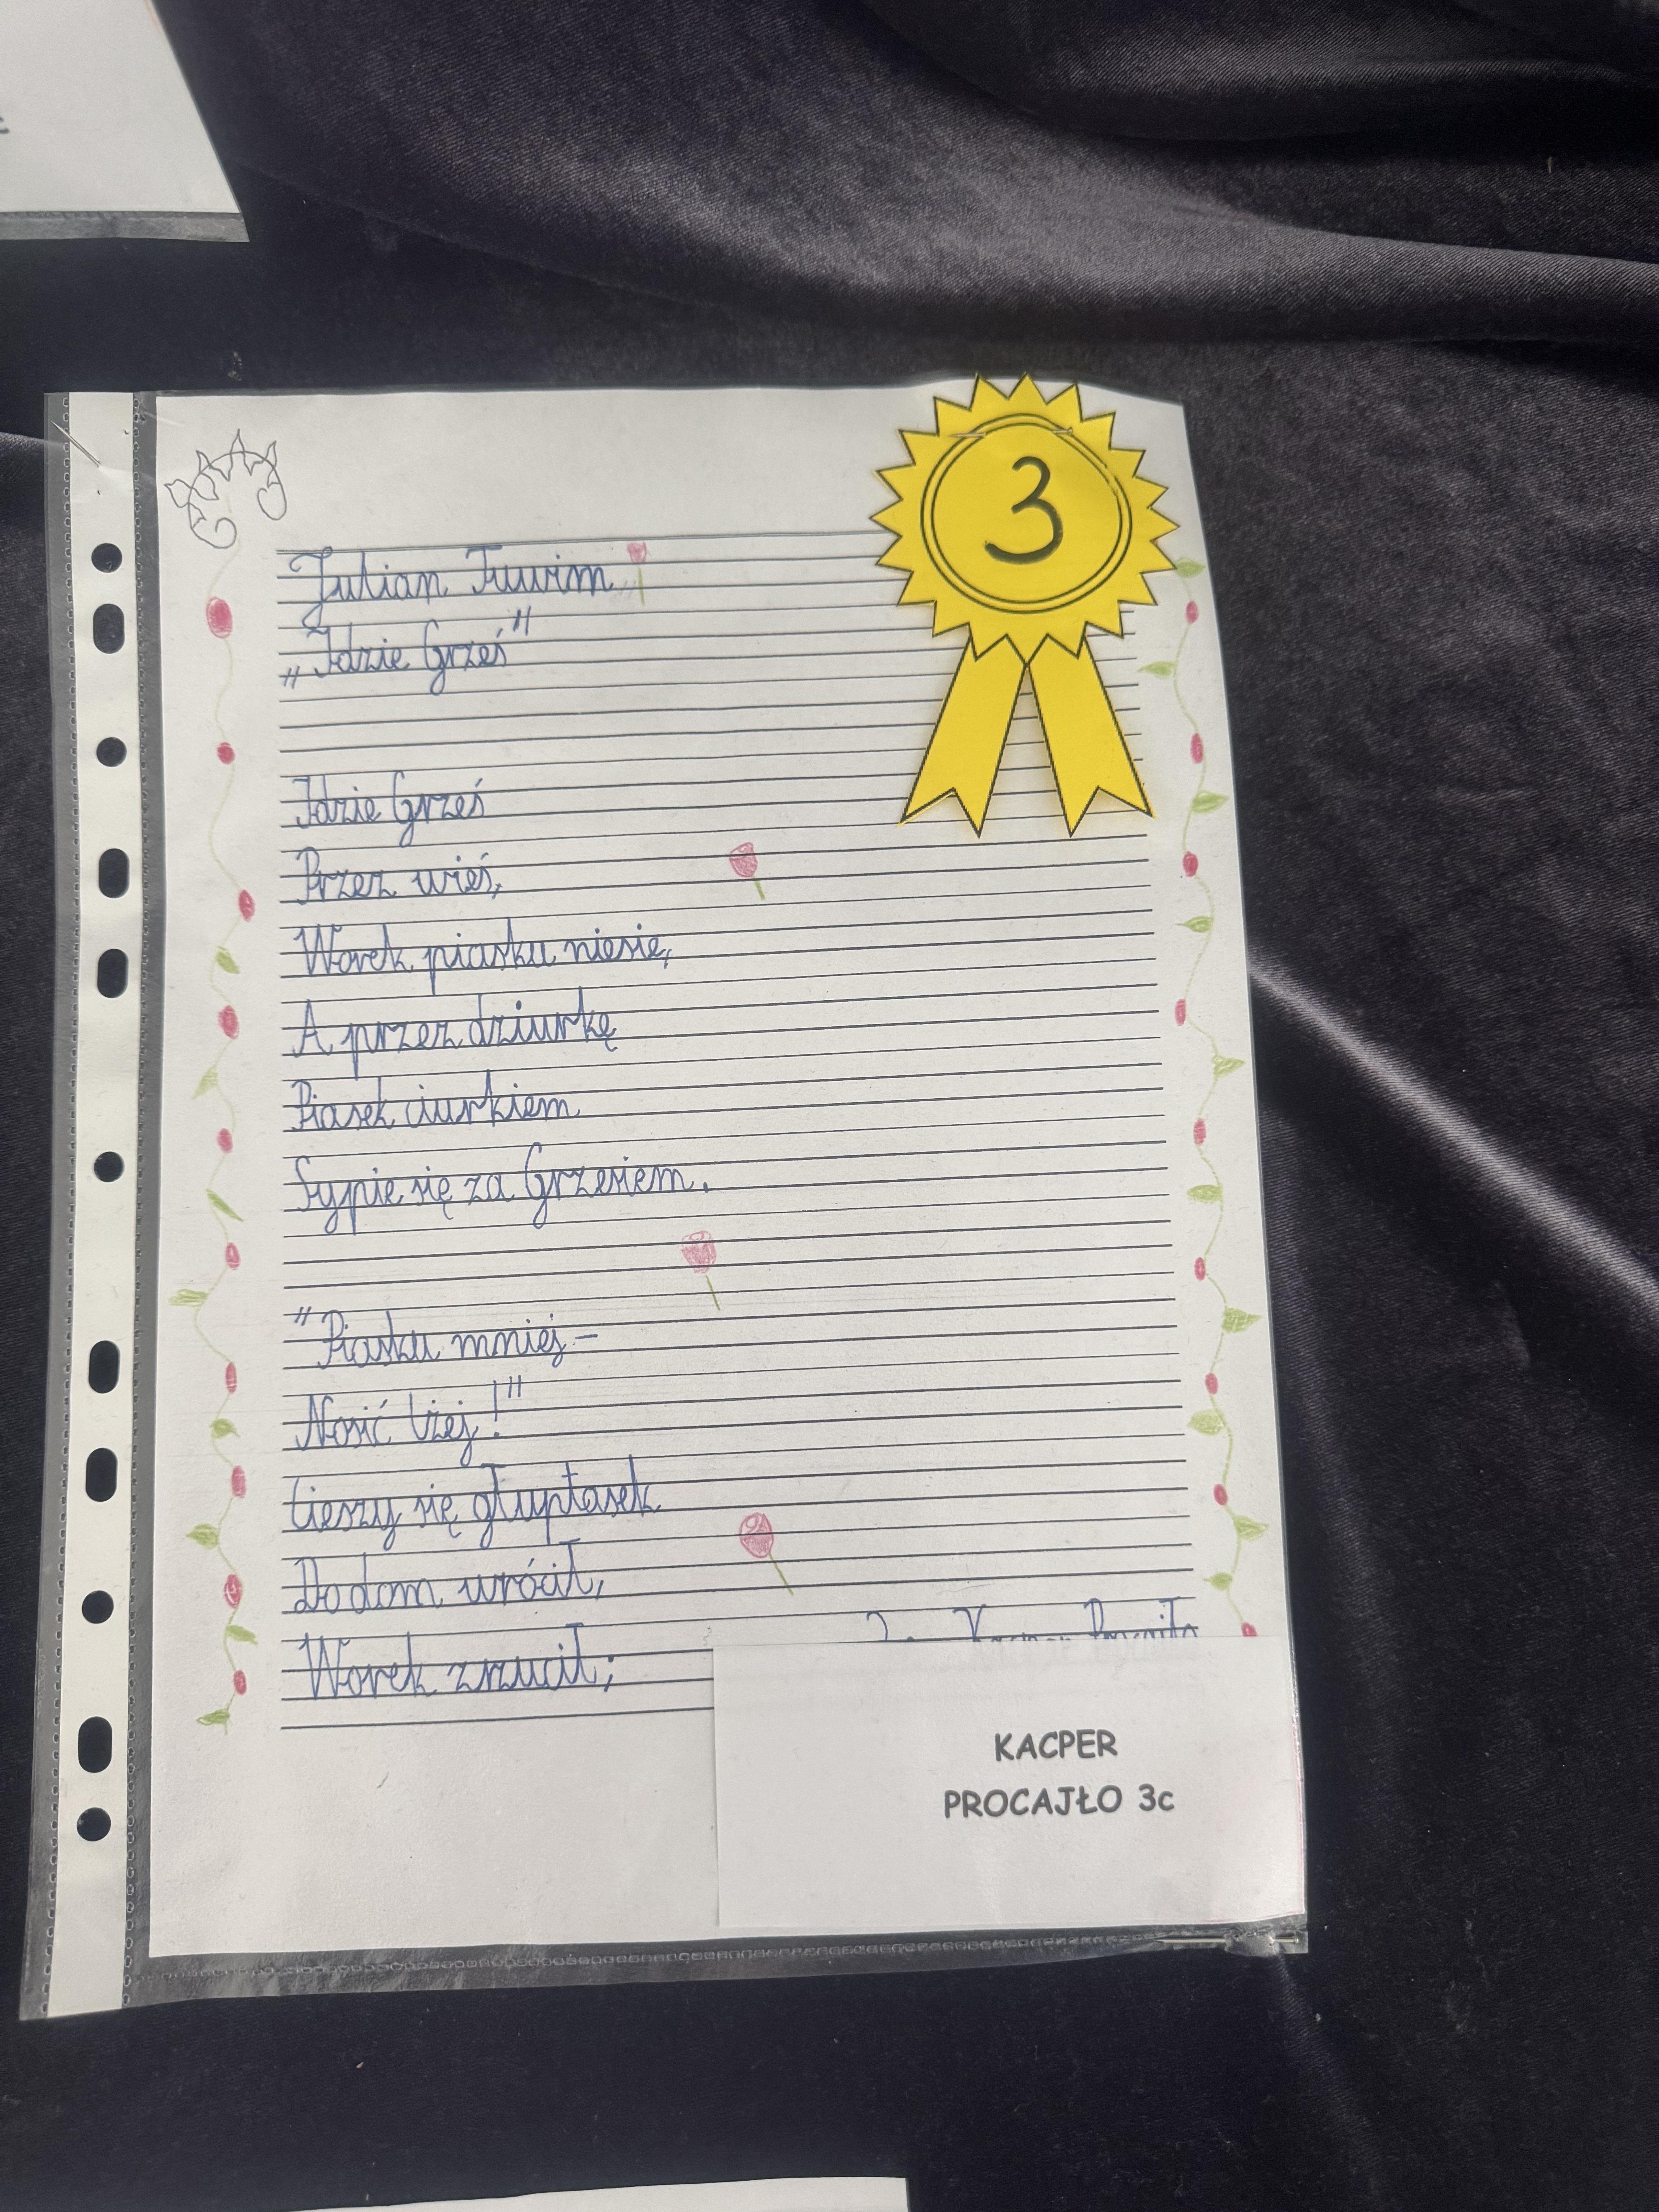 3
Julian Tuwim
„Idzie Grześ"
Idzie Grześ
Przez wieś,
Worek piasku niesie,
A przez dziurkę
Piasek ciurkiem
Sypie się za Grzesiem.
"Piasku mniej –
Nosić lżej!"
Cieszy się głuptasek
Do dom wrócił,
Worek zrzucił;
Kacper Procajło
KACPER
PROCAJŁO 3c